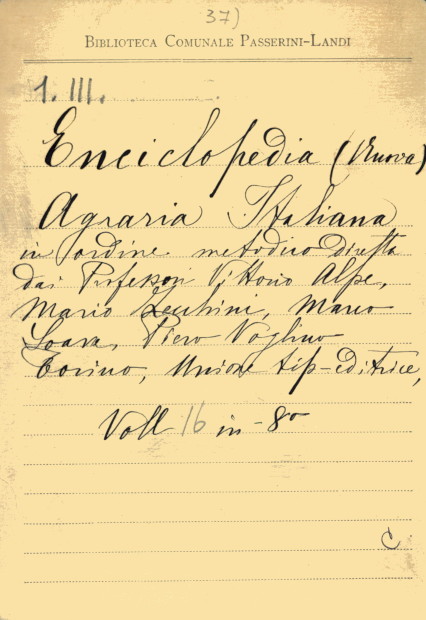 37)
BIBLIOTECA COMUNALE PASSERINI-LANDI
1. III.
Enciclopedia (Nuova)
Agraria Italiana
in ordine metodico diretta
dai Professori Vittorio Alpe,
Mario Zecchini, Marco
Soave, Piero Voglino
Torino, Unione tip-editrice,
Voll 16 in-8º
C